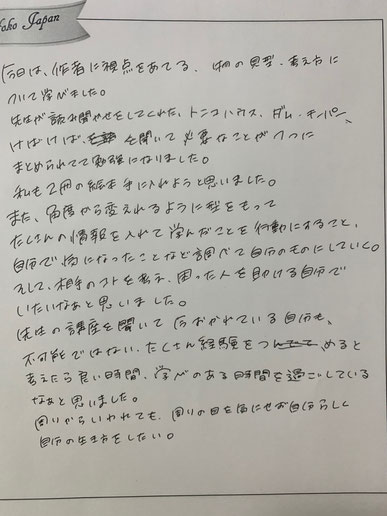 Yoko Japan
今日は、作者に視点をあてる、物の見型・考え方に
ついて学びました。
先生が読み聞かせをしてくれた、トンコハウス、ダム・キーパー、
けばけば、を聞いて必要なことが1つに
まとめられてて勉強になりました。
私も2冊の絵本手に入れようと思いました。
また、角度から変えれるように型をもって
たくさんの情報を入れて学んだことを行動にすること、
自分で物になったことなど調べて自分のものにしていく。
そして、相手のコトを考え、困った人を助ける自分で
いたいなぁと思いました。
先生の講座を聞いて今おかれている自分も、
不可能ではない、たくさん経験をつめると
考えたら良い時間、学びのある時間を過ごしている
なぁと思いました。
周りからいわれても、周りの目を気にせず自分らしく
自分の生き方をしたい。